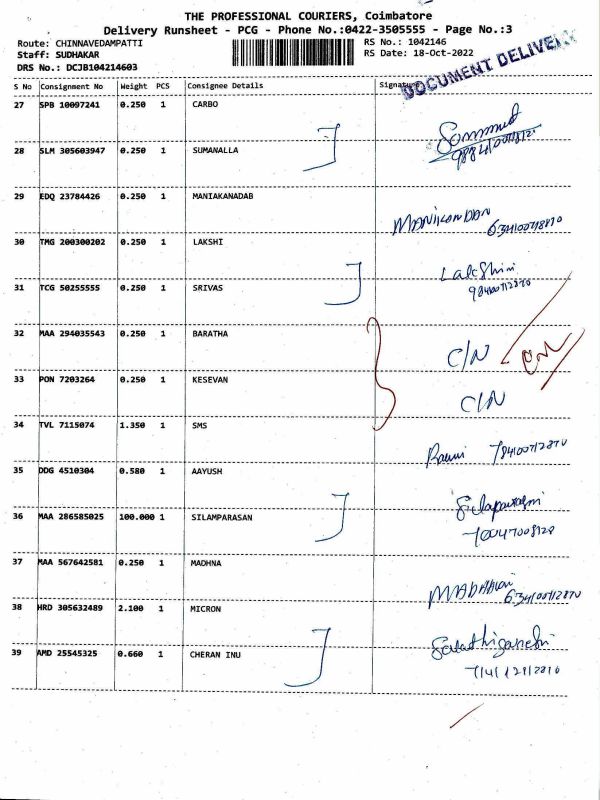 THE PROFESSIONAL COURIERS, Coimbatore
Delivery Runsheet - PCG - Phone No.:0422-3505555 - Page No.:3
Route: CHINNAVEDAMPATTI RS No.: 1042146
Staff: SUDHAKAR RS Date: 18-Oct-2022
DRS No.: DCJB104214603
DOCUMENT DELIVERY
S No Consignment No Weight PCS Consignee Details Signature
27 SPB 10097241 0.250 1 CARBO
28 SLM 305603947 0.250 1 SUMANALLA
29 EDQ 23784426 0.250 1 MANIAKANADAB
MANIKANDAN
30 TMG 200300202 0.250 1 LAKSHI
Lakshmi
31 TCG 50255555 0.250 1 SRIVAS
32 MAA 294035543 0.250 1 BARATHA
C/N
33 PON 7203264 0.250 1 KESEVAN
C/N
34 TVL 7115074 1.350 1 SMS
35 DDG 4510304 0.580 1 AAYUSH
36 MAA 286585025 100.000 1 SILAMPARASAN
37 MAA 567642581 0.250 1 MADHNA
38 HRD 305632489 2.100 1 MICRON
39 AMD 25545325 0.660 1 CHERAN INU